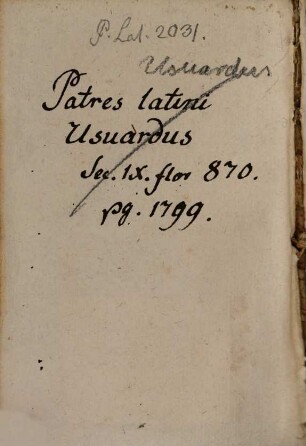 P. Lat. 2031.
Usuardus
Patres latini
Usuardus
Sec. IX. flor 870.
pg. 1799.